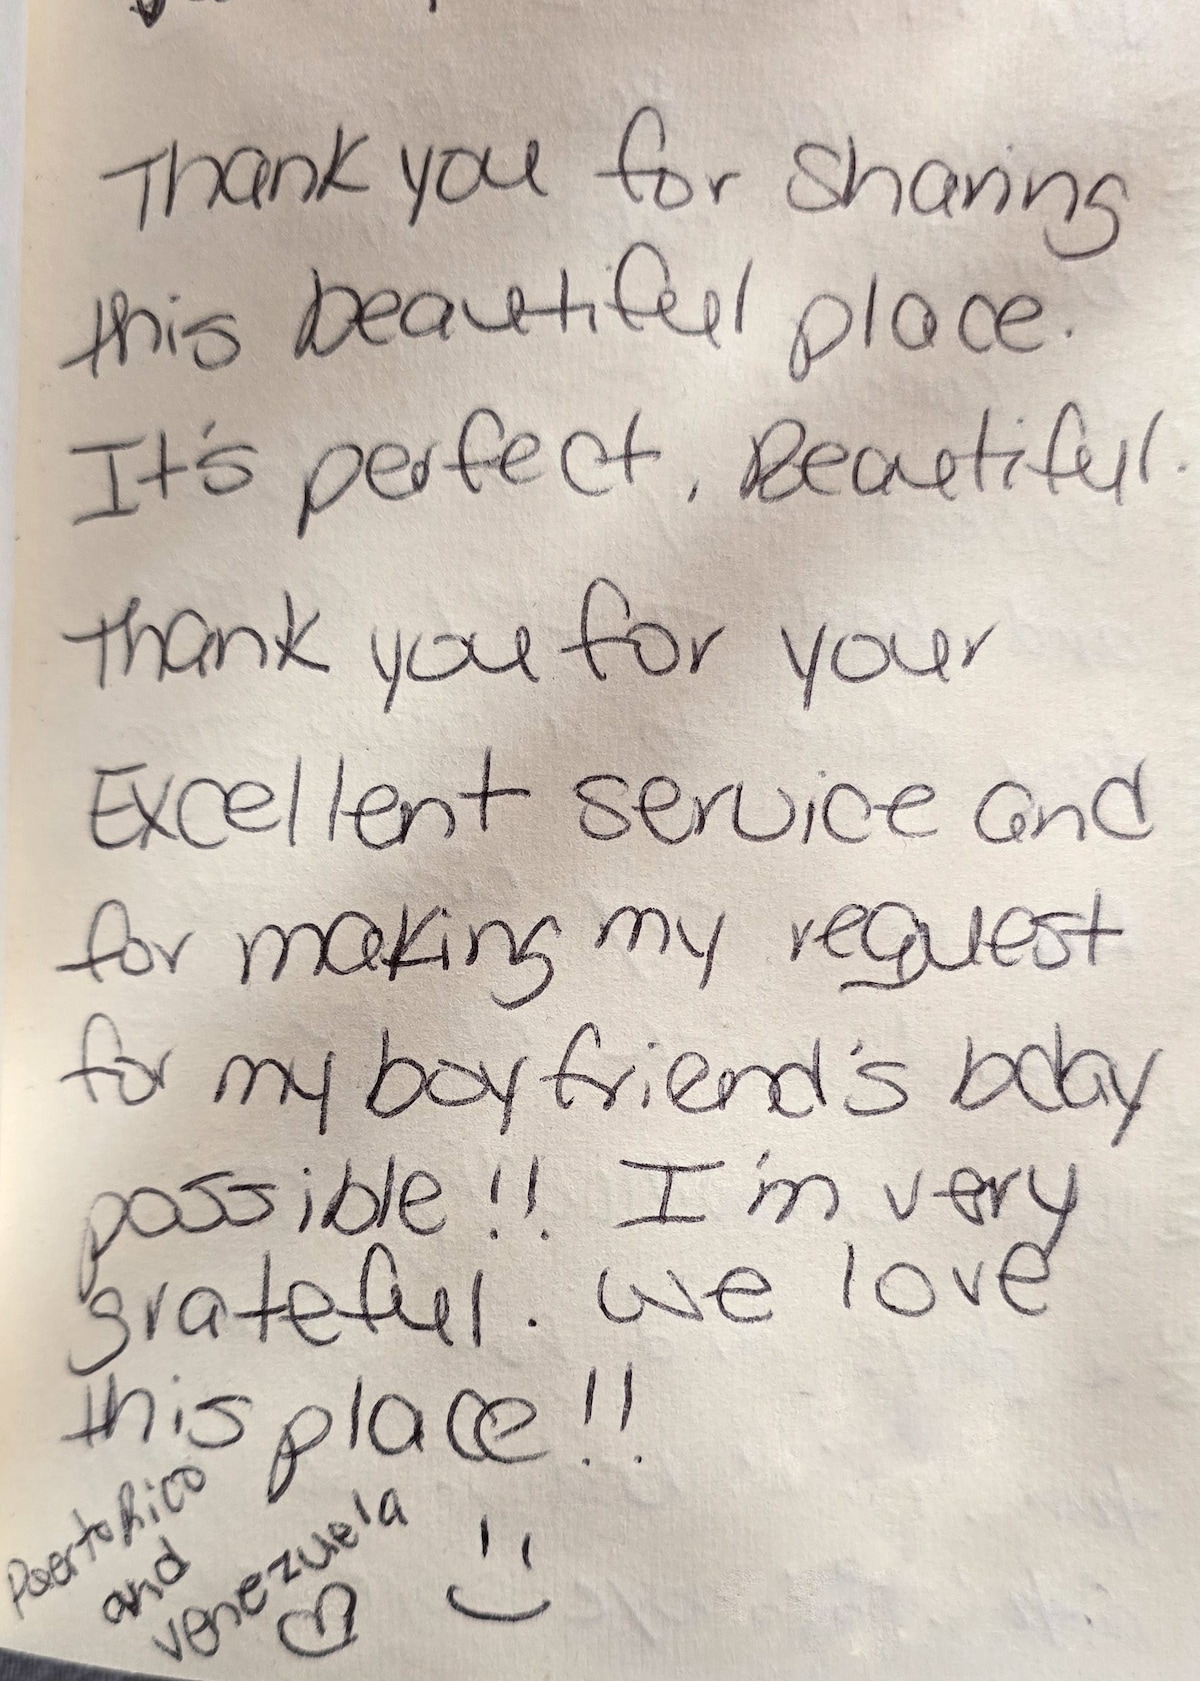 Thank you for sharing
this beautiful place.
It's perfect. Beautiful.
Thank you for your
Excellent service and
for making my request
for my boyfriend's bday
possible!! I'm very
grateful. We love
this place!!
Puerto Rico
and
Venezuela